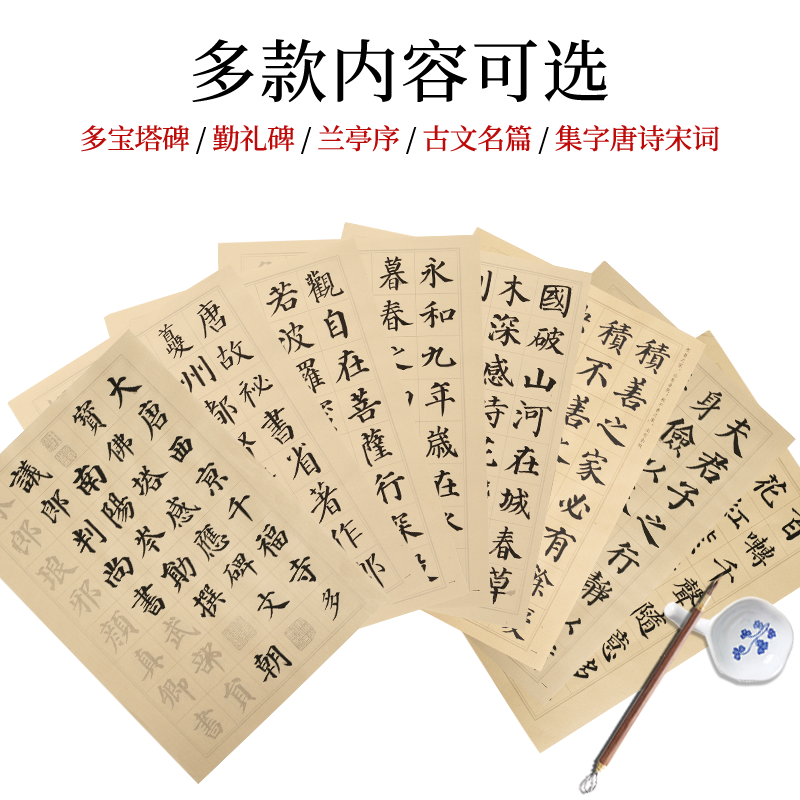 多款内容可选
多宝塔碑 / 勤礼碑 / 兰亭序 / 古文名篇 / 集字唐诗宋词
大唐西京千福寺多
寶佛塔感應碑文
南陽岑勛撰 朝
議郎判尚書武部員
郎琅邪顏真卿書
唐故祕書省著作郎
夔州都
觀自在菩薩行深
若波羅
永和九年歲在
暮春之
國破山河在城春草
木深感時花
積善之家必有餘
積不善之
夫君子之行靜以
身儉以
百囀千聲隨意多
花